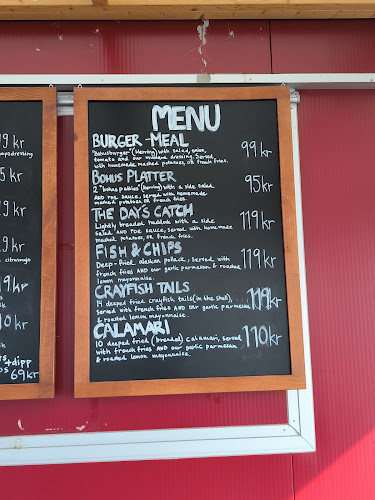 MENU
BURGER-MEAL 99 kr
"Bohusburger" (Herring) with salad, onion,
tomato and our mustard dressing. Served
with homemade mashed potatoes, or french fries.
BOHUS PLATTER 95 kr
2 "bohus patties" (herring) with a side salad
AND roe sauce, served with homemade
mashed potatoes, or french fries.
THE DAYS CATCH 119 kr
Lightly breaded haddock with a side
salad AND roe sauce, served with homemade
mashed potatoes, or french fries.
FISH & CHIPS 119 kr
Deep-fried alaskan pollock, served with
french fries AND our garlic parmesan & roasted
lemon mayonnaise.
CRAYFISH TAILS 119 kr
14 deeped fried crayfish tails (in the shell),
served with french fries AND our garlic parmesan
& roasted lemon mayonnaise.
CALAMARI 110 kr
10 deeped fried (breaded) calamari, served
with french fries AND our garlic parmesan
& roasted lemon mayonnaise.
9 kr
5 kr
9 kr
9 kr
9 kr
0 kr
+dipp
69 kr